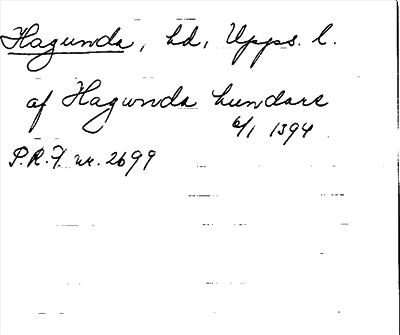 Hagunda, hd, Upps. l.
af Hagunda hundare
6/1 1394
P.R.F. nr. 2699